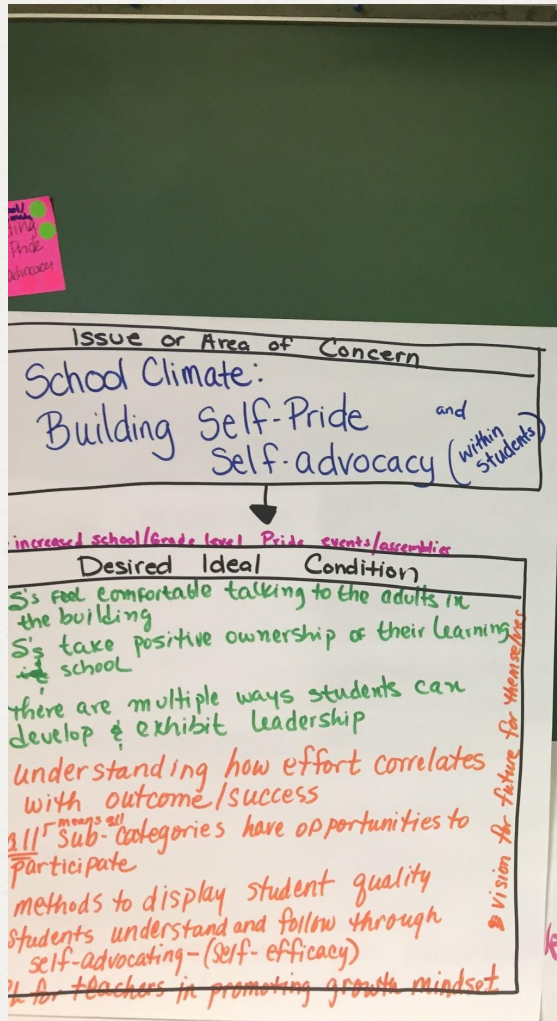 Pride
advocacy
Issue or Area of Concern
School Climate:
Building Self-Pride and
Self-advocacy (within
students)
increased school/Grade level Pride events/assemblies
Desired Ideal Condition
S's feel comfortable talking to the adults in
the building
S's take positive ownership of their learning
school
there are multiple ways students can
develop & exhibit leadership
understanding how effort correlates
with outcome/success
means all
all sub-categories have opportunities to
participate
methods to display student quality
students understand and follow through
self-advocating-(self-efficacy)
PL for teachers in promoting growth mindset
vision for future for themselves